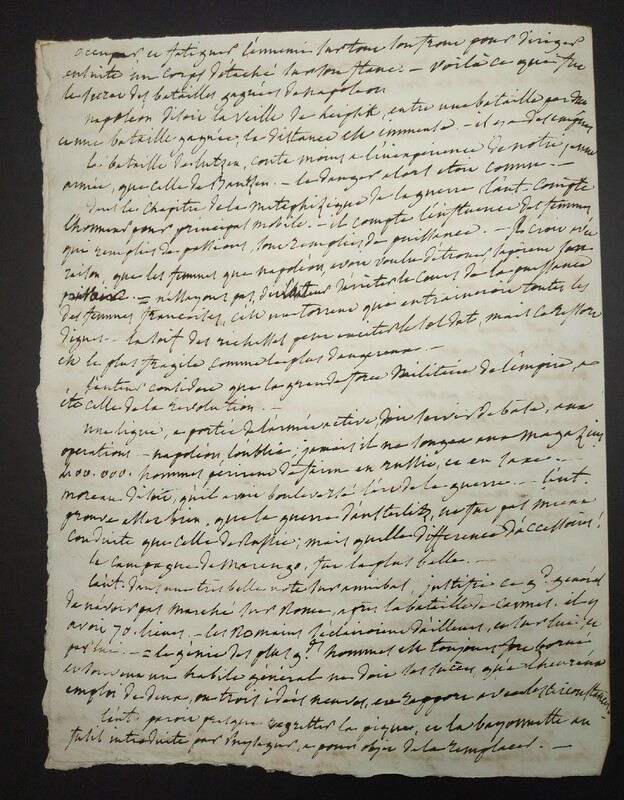 occuper et fatiguer l'ennemi sur tout son front pour diriger
ensuite un corps détaché sur son flanc. — voilà ce qui fut
le secret des batailles gagnées de napoléon
napoléon disoit la veille de leipsik, entre une bataille perdue
et une bataille gagnée, la distance est immense. — il y a des empires
La bataille de Lutzen, conte moins a l'inexpérience de notre jeune
armée, que celle de Bautzen. — le danger alors etoit connu. —
dans le chapitre de la métaphisique de la guerre l'aut. compte
l'homme pour principal mobile. — il compte l'influence des femmes
qui remplies de passions, sont remplies de puissance. — Je crois avec
raison que les femmes que napoléon, avoit voulu détroner
= n'essayons pas, d'arrêter le cours de la puissance
des femmes françaises, c'est un torrent que entraineroit toutes les
digues — la soif des richesses peut exciter le soldat, mais ce ressort
est le plus fragile comme le plus dangereux. —
l'auteur considere que la grande force militaire de l'empire, a
été celle de la revolution. —
une ligne, a portée de l'armée active, doit servir de base, aux
operations — napoléon l'oublia; jamais il ne songea aux magazins
400.000. hommes périrent de faim en russie, et en saxe. —
moreau disoit, qu'il avoit bouleversé l'art de la guerre. — l'aut.
prouve assez bien, que la guerre d'austerlitz, ne fut pas mieux
conduite que celle de Russie; mais quelle différence d'accessoires!
la campagne de marengo, fut la plus belle. —
L'aut. dans une tres belle note sur annibal, justifie ce gd. général
de n'avoir pas marché sur Rome, après la bataille de Cannes. il y
avoit 70. lieues. — les Romains s'éclairoient d'ailleurs, et sur lui, et
par lui. — = le génie des plus gds. hommes est toujours fort borné
et souvent un habile général ne doit ses succès, qu'a l'heureux
emploi de deux, ou trois idées neuves, en rapport avec les circonstances
l'aut. paroit presque regretter la pique, et la bayonnette au
fusil introduite par Puysegur, a pour objet de la remplacer. —